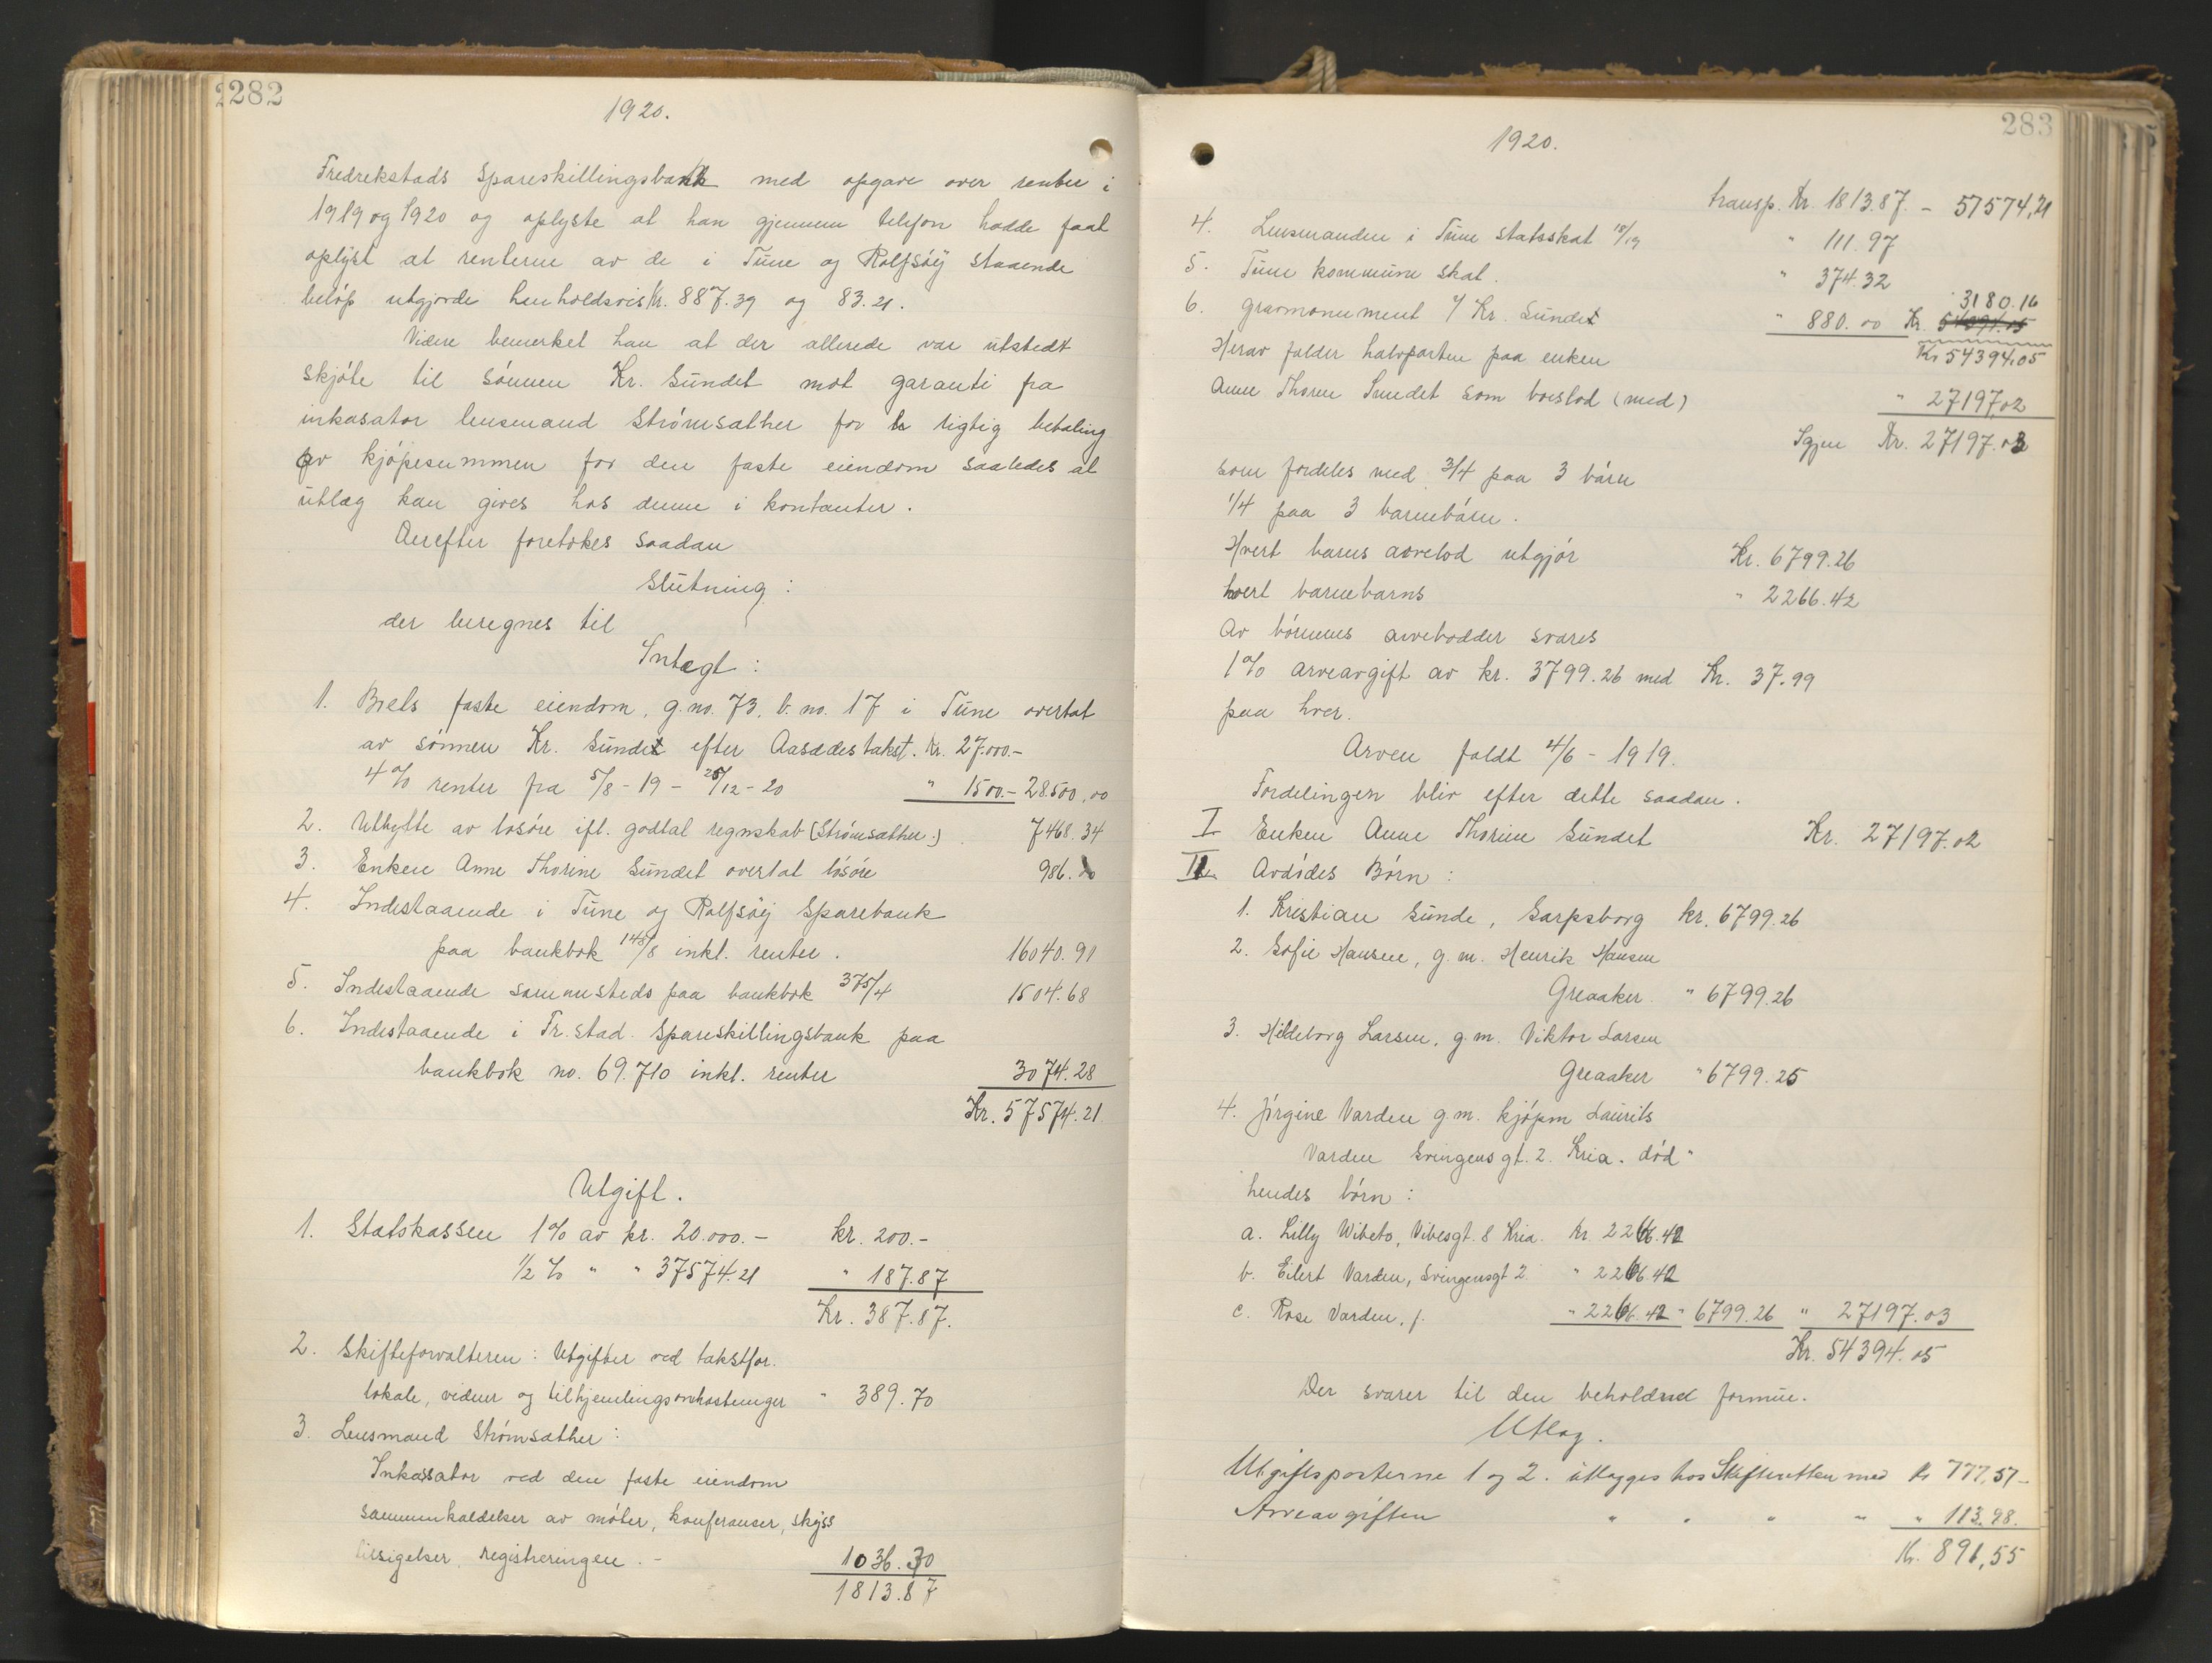 282
1920.
Fredrekstads Spareskillingsbank med opgave over renter i
1919 og 1920 og oplyste at han gjennem telefon hadde faat
oplyst at renterne av de i Tune og Rolfsøy staaende
beløp utgjorde henholdsvis kr. 887.39 og 83.21.
Videre bemerket han at der allerede var utstedt
skjøte til sønnen Kr. Sundet mot garanti fra
inkasator lensmand Strømsæther for rigtig betaling
av kjøpesummen for den faste eiendom saaledes at
utlæg kan gives hos denne i kontanter.
Derefter foretokes saadan
Slutning:
der beregnes til
Intægt:
1. Boets faste eiendom, g.no. 73, b.no. 17 i Tune overtat
av sønnen Kr. Sundet efter Aasædestakst. Kr. 27.000.-
4% renter fra 5/8-19 - 25/12-20 " 1500.- 28500,00
2. Utbytte av løsøre ifl. godtat regnskab (Strømsæther.) 7468.34
3. Enken Anne Thorine Sundet overtat løsøre 986.00
4. Indestaaende i Tune og Rolfsøy Sparebank
paa bankbok 148/8 inkl. renter. 16040.91
5. Indestaaende sammesteds paa bankbok 375/4 1504.68
6. Indestaaende i Fr.stad. Spareskillingsbank paa
bankbok no. 69.710 inkl. renter 3074.28
Kr. 57574.21
Utgift.
1. Statskassen 1% av kr. 20.000.- kr. 200.-
1/2% " " 37574.21 " 187.87
Kr. 387.87.
2. Skifteforvalteren: Utgifter ved takstfor.
lokale, vidner og tilhjemlingsomkostninger " 389.70
3. Lensmand Strømsæther:
Inkassator ved den faste eiendom
sammenkaldelser av møter, konferanser, skyss
tilsigelser, registreringen.- 1036.30
1813.87
283
1920.
transp. Kr. 1813.87. - 57574,21
4. Lensmanden i Tune statsskat 18/19 " 111.97
5. Tune kommune skat. " 374.32
3180.16
6. Gravmonument v/ Kr. Sundet " 880.00 Kr. 54394.05
Kr 54394,05
Herav falder halvparten paa enken
Anne Thorine Sundet som boeslod (med) " 27197,02
Igjen Kr. 27197.03
som fordeles med 3/4 paa 3 børn
1/4 paa 3 barnebørn.
Hvert barns arvelod utgjør Kr. 6799.26
hvert barnebarns " 2266.42
Av børnenes arvelodder svares
1% arveavgift av kr. 3799.26 med Kr. 37.99
paa hver.
Arven faldt 4/6-1919.
Fordelingen blir efter dette saadan.
I Enken Anne Thorine Sundet Kr. 27197.02
II. Avdødes Børn:
1. Kristian Sunde, Sarpsborg kr. 6799.26
2. Sofie Hansen, g.m. Henrik Hansen
Greaaker " 6799.26
3. Hildeborg Larsen, g.m. Viktor Larsen
Greaaker " 6799.25
4. Jørgine Varden g.m. kjøpm Laurits
Varden Svingensgt. 2. Kria. død"
hendes børn:
a. Lilly Wibeto, Vibesgt. 8 Kria. Kr. 2266.42
b. Eilert Varden, Svingensgt 2. " 2266.42
c. Rose Varden, f. " 2266.42 " 6799.26 " 27197.03
Kr. 54394.05
Der svarer til den beholdned formue.
Utlæg.
Utgiftsposterne 1 og 2. utlægges hos Skifteretten med Kr 777,57-
Arveavgiften " " " " " 113.98.
Kr. 891,55